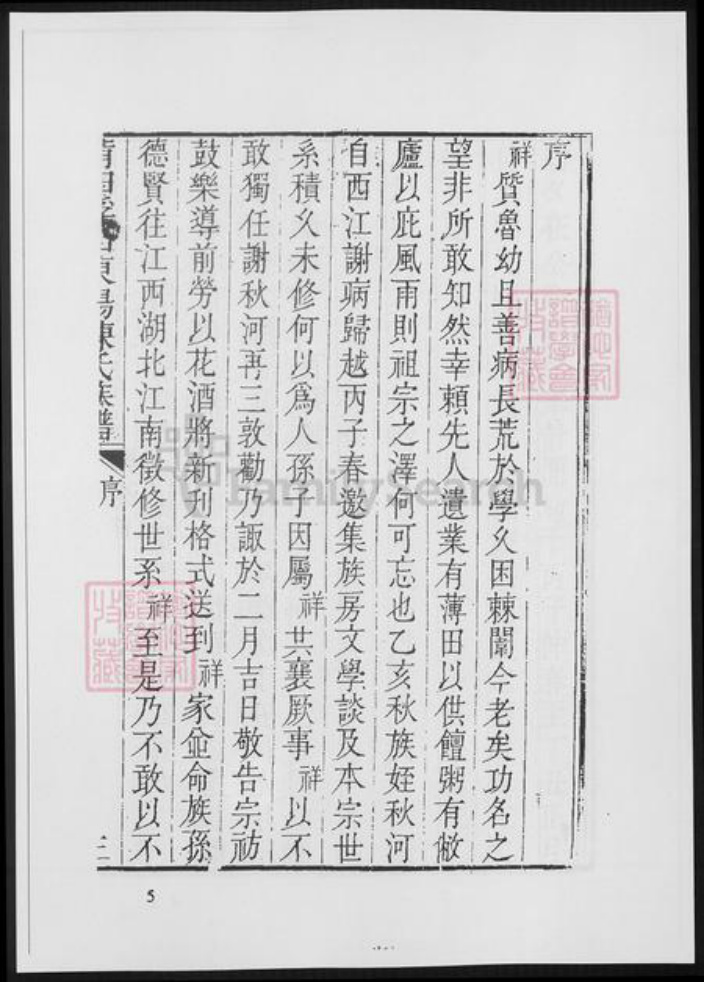 序
祥質魯幼且善病長荒於學久困棘闈今老矣功名之
望非所敢知然幸賴先人遺業有薄田以供饘粥有敝
廬以庇風雨則祖宗之澤何可忘也乙亥秋族姪秋河
自西江謝病歸越丙子春邀集族房文學談及本宗世
系積久未修何以爲人孫子因屬祥共襄厥事祥以不
敢獨任謝秋河再三敦勸乃諏於二月吉日敬告宗祊
鼓樂導前勞以花酒將新刊格式送到祥家並命族孫
德賢往江西湖北江南徵修世系祥至是乃不敢以不
陳氏族譜
序
三
5
FamilySearch
譜學會
收藏
譜學會
收藏